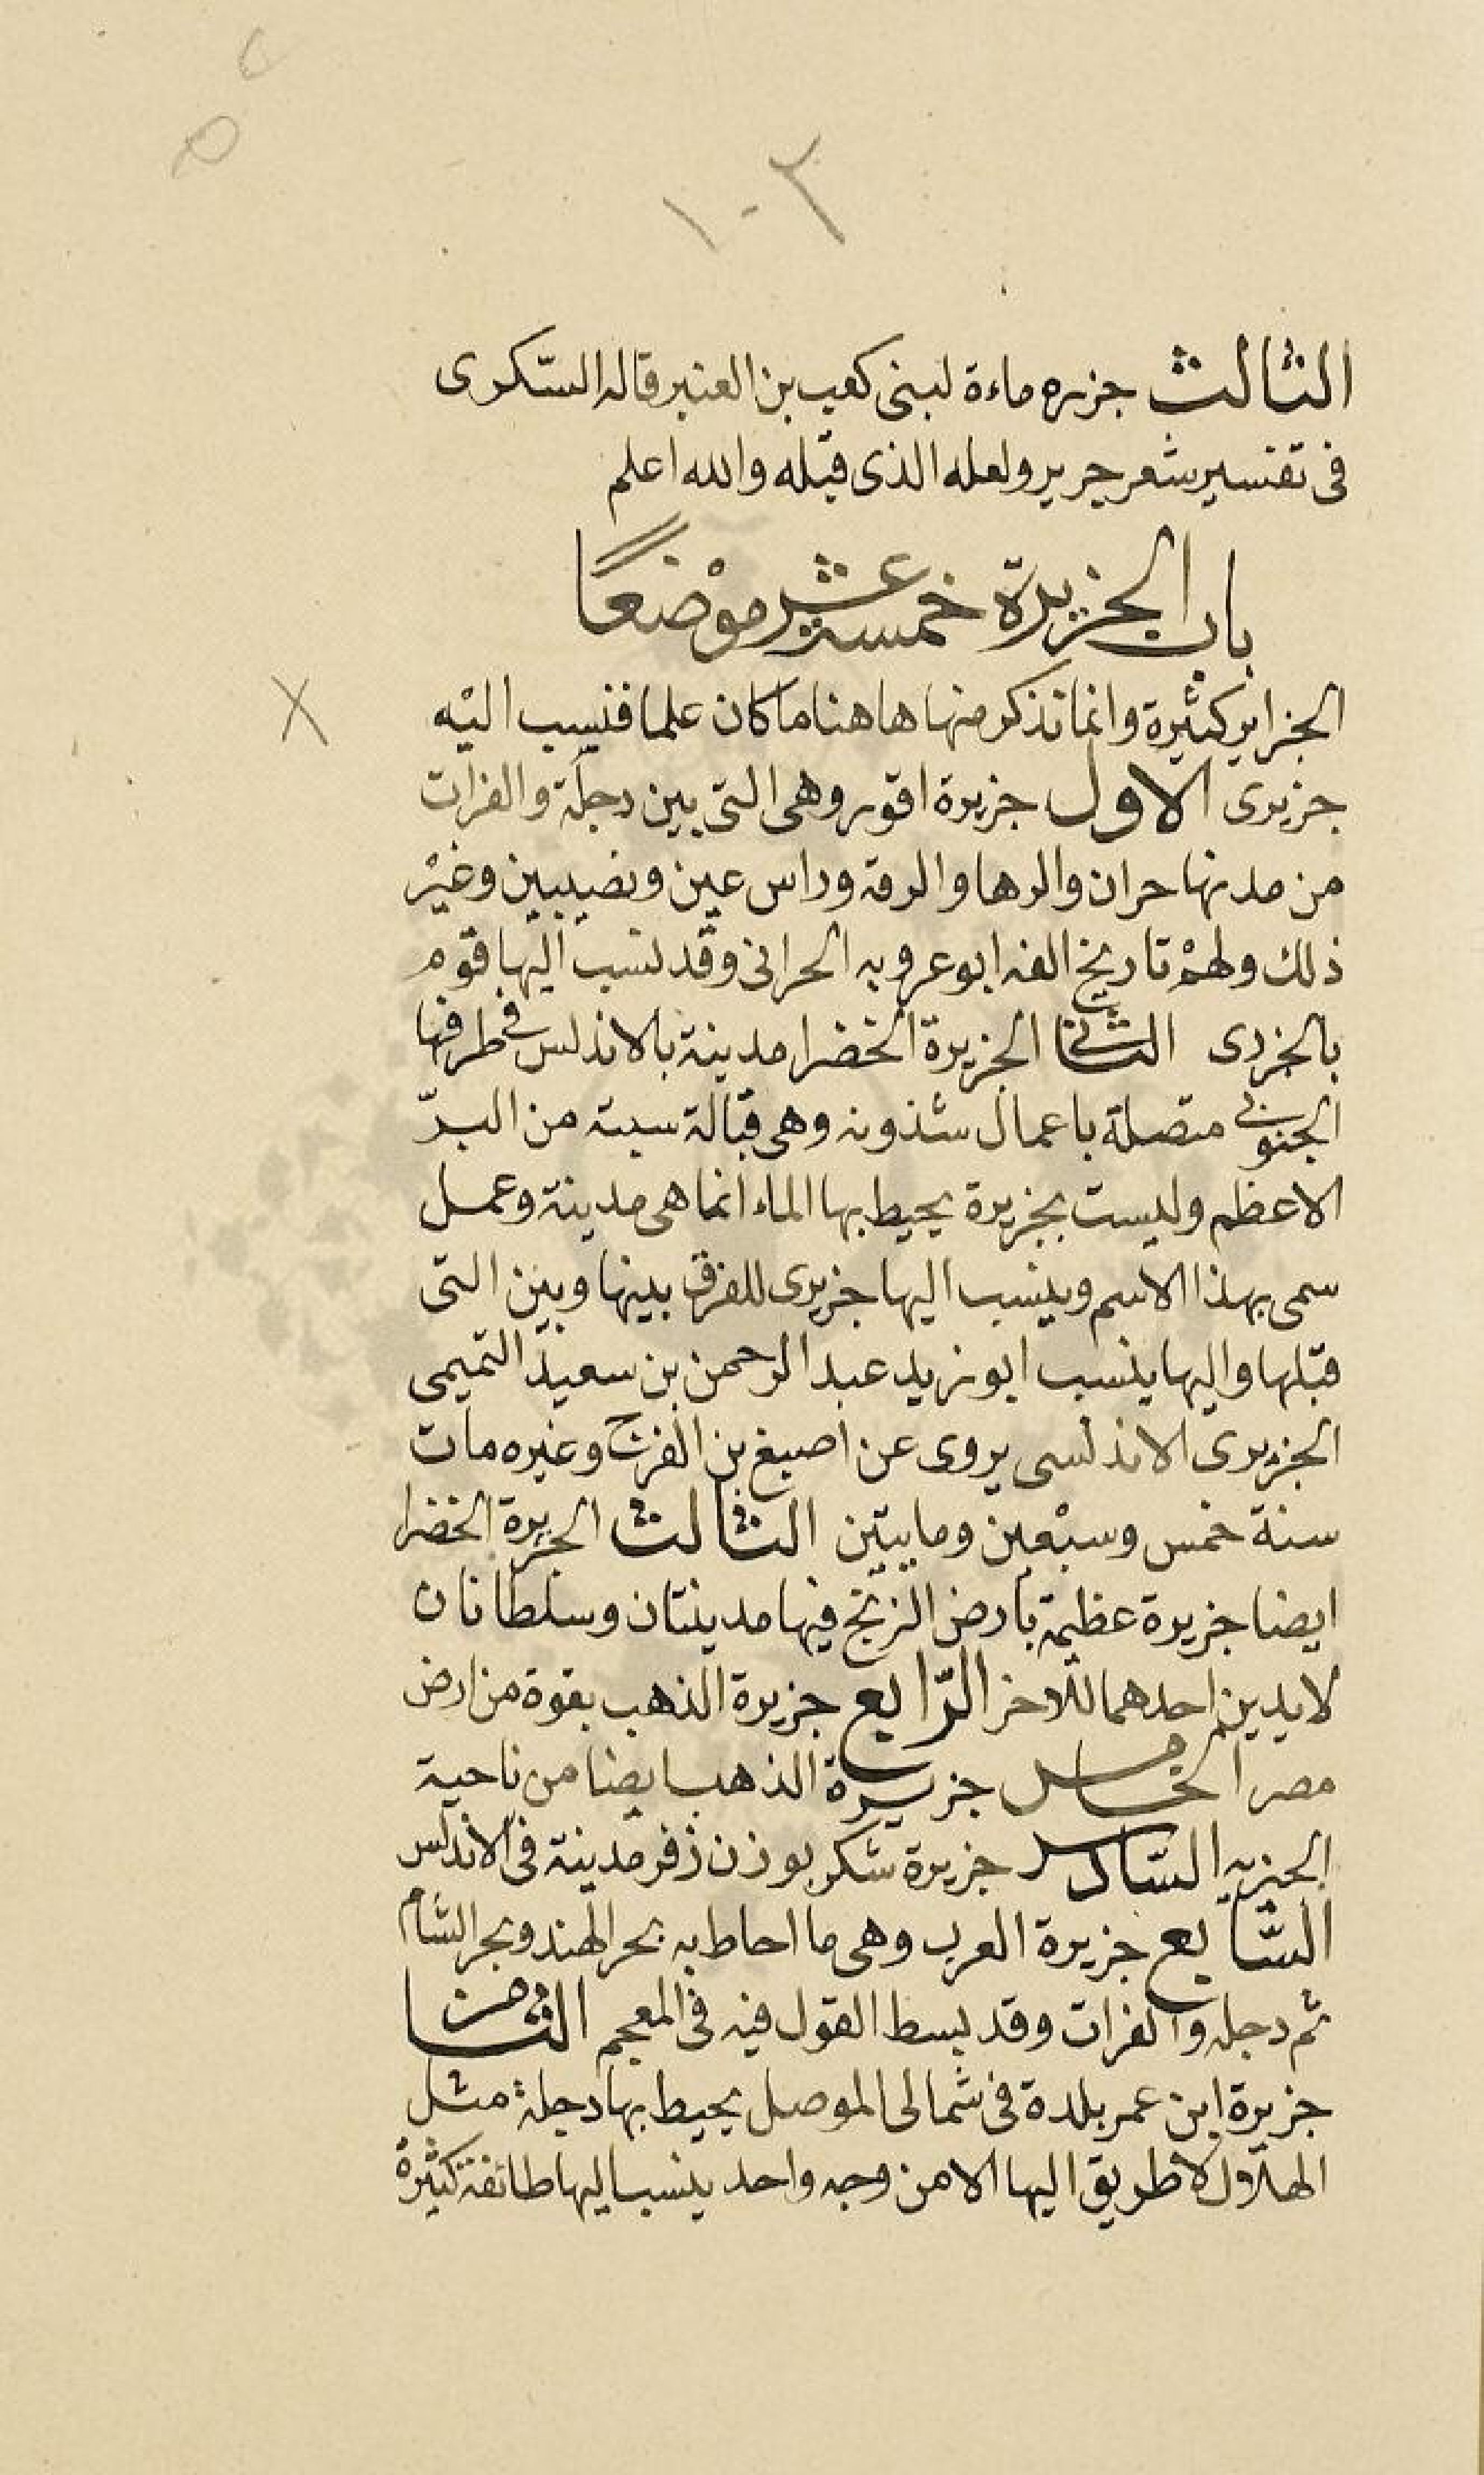 ١٠٣
الثالث جزره ماءة لبنى كعب بن العنبر قاله السّكرى
فى تفسير شعر جرير ولعله الذى قبله والله اعلم
باب الجزيرة خمسة عشر موْضعًا
الجزاير كثيرة وانما نذكر منها هاهنا ما كان علما فنسب اليْه
جزيرى الاول جزيرة اقور وهى التى بين دجلة والفرات
من مدنها حران والرها والرقة وراس عين ونصيبين وغيْر
ذلك ولهمْ تاريخ الفه ابو عروبه الحرانى وقد نسب اليها قوْم
بالجزرى الثانى الجزيرة الخضرا مدينة بالاندلس فى طرفها
الجنوبى متصلة باعمال شذونه وهى قبالة سبتة من البرّ
الاعظم وليست بجزيرة يحيط بها الماء انما هى مدينة وعمل
سمى بهذا الاسم وينسب اليها جزيرى للفرق بينها وبين التى
قبلها واليها ينسب ابو زيد عبد الرحمن بن سعيد التميمى
الجزيرى الاندلسى يروى عن اصبغ بن الفرج وغيره مات
سنة خمس وسبْعين ومايتين الثالث الجزيرة الخضرا
ايضا جزيرة عظيمة بارض الزنج فيها مدينتان وسلطانان
لا يدين احدهما للاخر الرّابع جزيرة الذهب بقوة من ارض
مصر الخامس جزيرة الذهب ايضا من ناحية
الجزيه السّادس جزيرة شكر بوزن زفر مدينة فى الاندلس
السّابع جزيرة العرب وهى ما احاط به بحر الهند وبحر الشام
ثم دجله والفرات وقد بسط القول فيه فى المعجم الثامن
جزيرة ابن عمر بلدة فى شمالى الموصل يحيط بها دجلة مثل
الهلال لا طريق اليها الا من وجه واحد ينسب اليها طائفة كثيرة